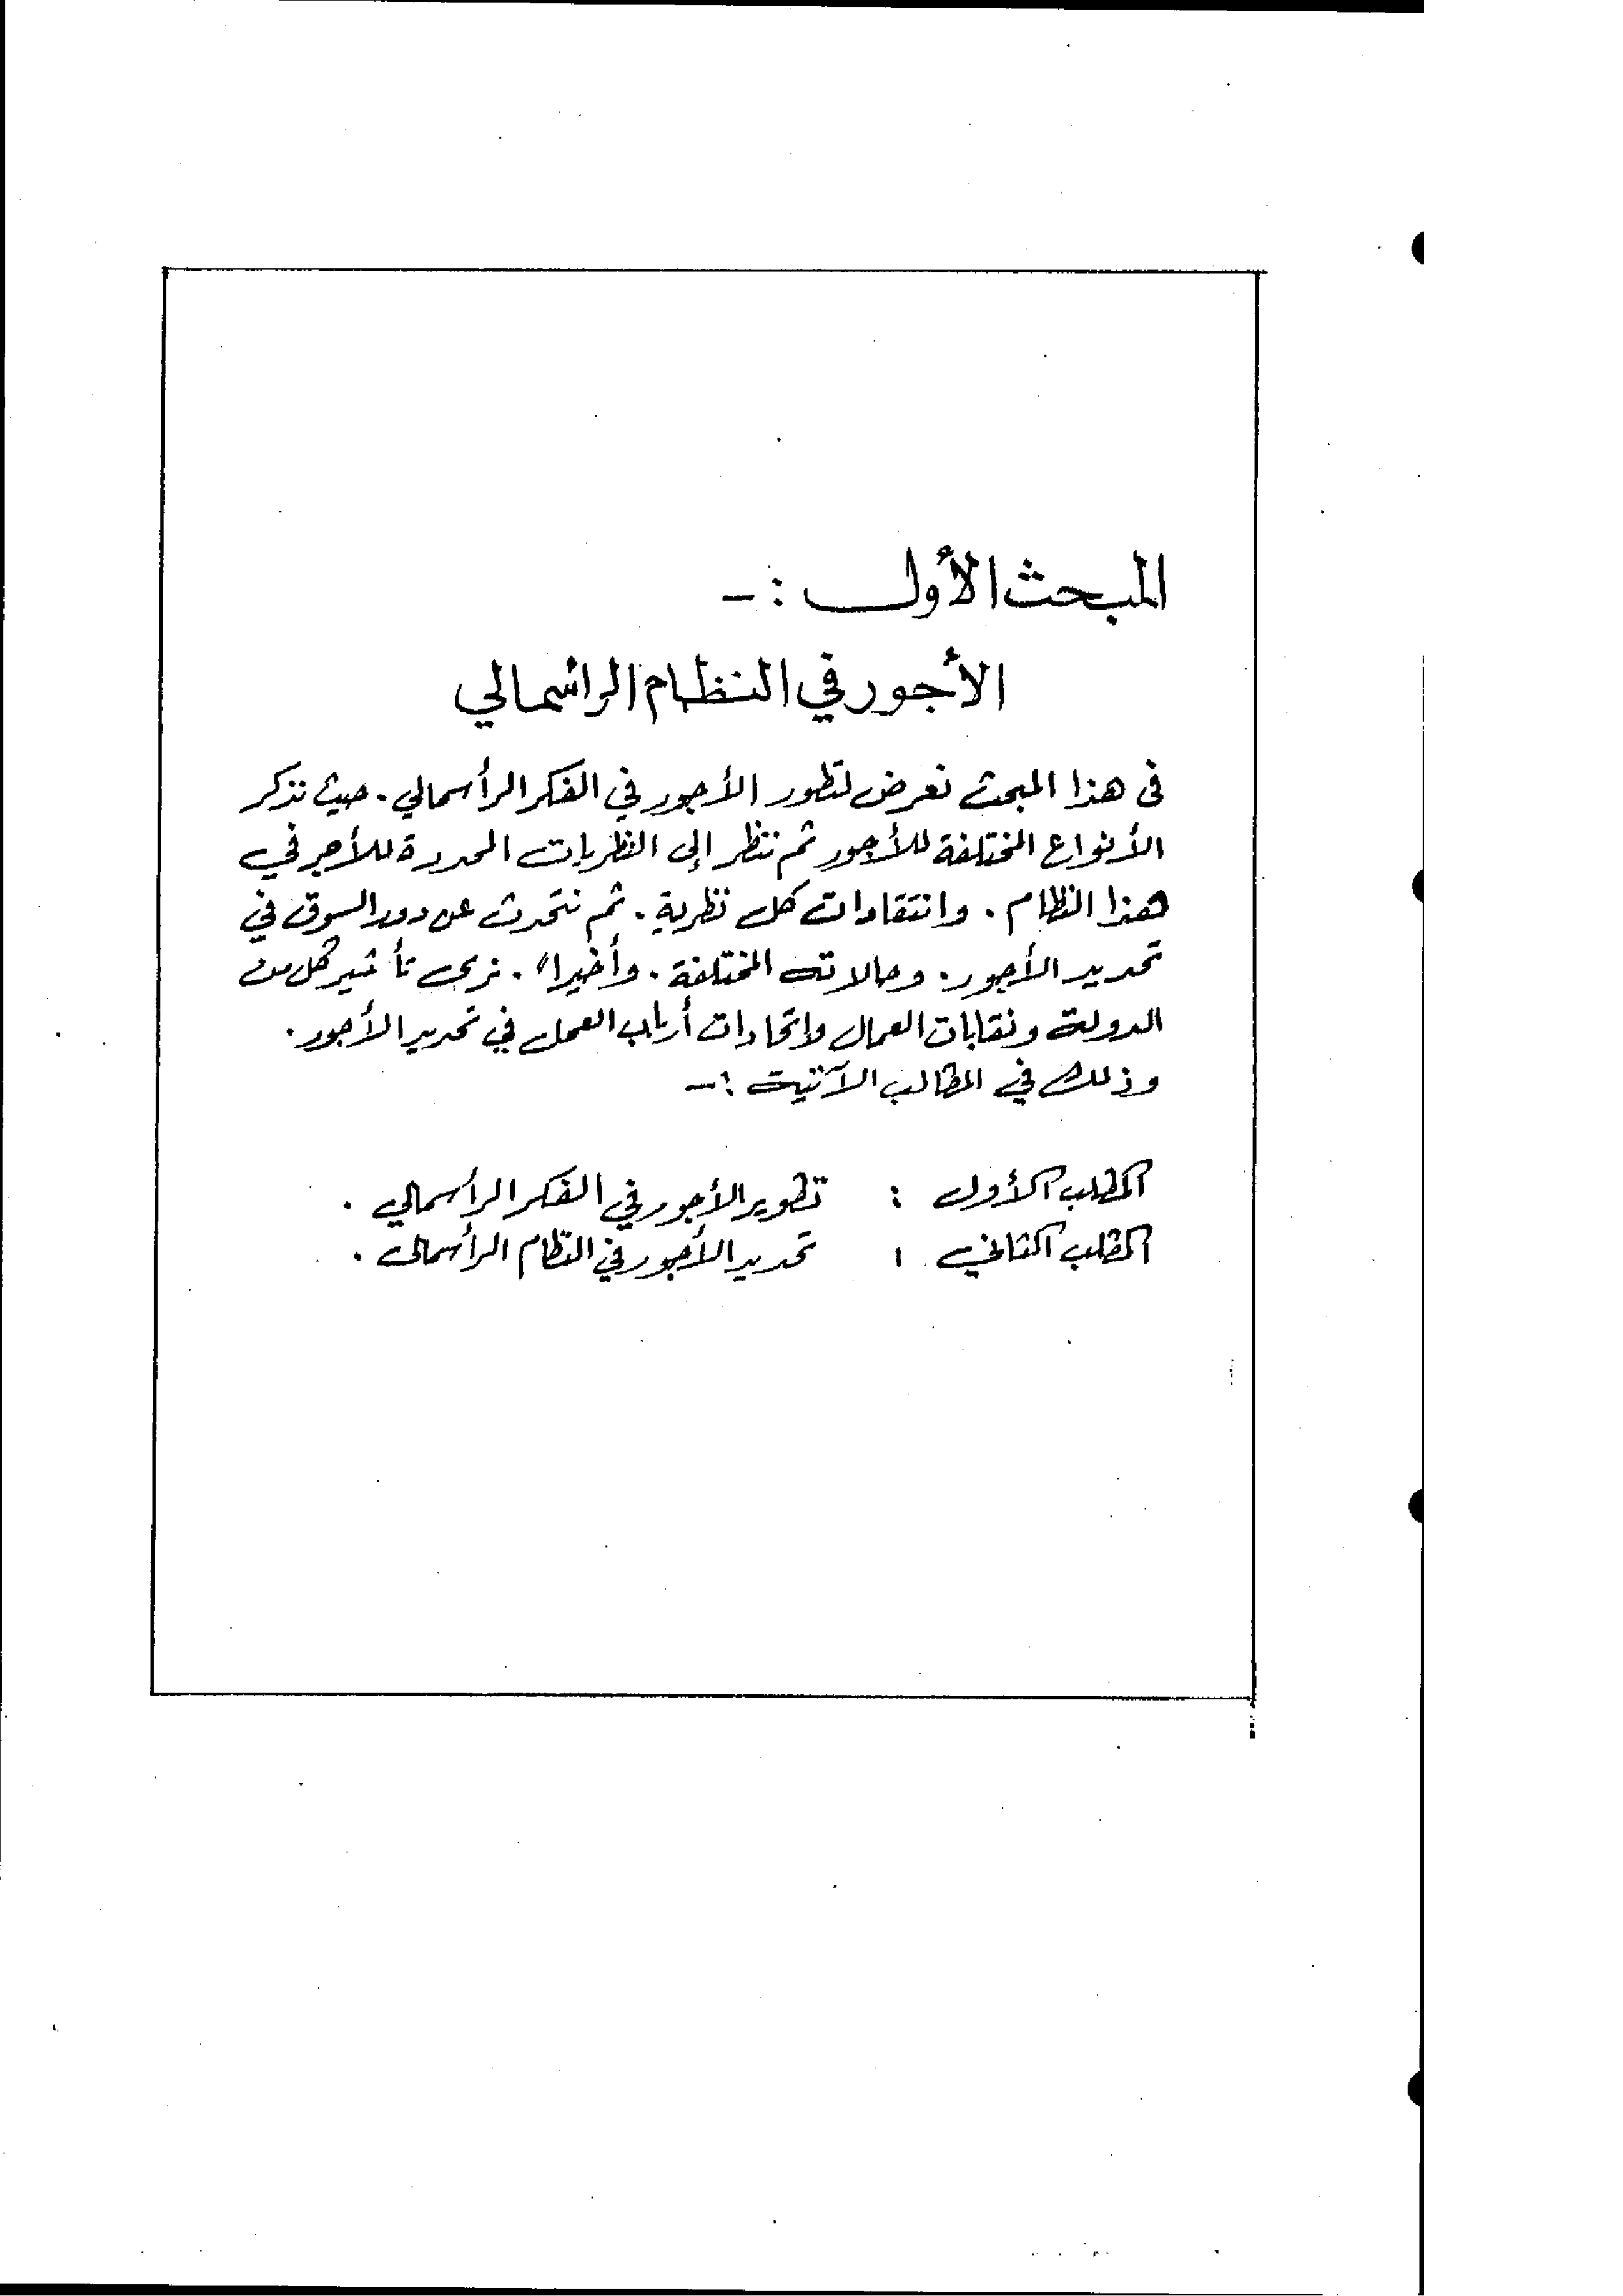 المبحث الأول :-
الأجور في النظام الرأسمالي
فى هذا المبحث نعرض لتطور الأجور في الفكر الرأسمالي . حيث نذكر
الأنواع المختلفة للأجور ثم ننظر إلى النظريات المحددة للأجر في
هذا النظام . وانتقادات كل نظرية . ثم نتحدث عن دور السوق في
تحديد الأجور . وحالاته المختلفة . وأخيراً . نرى تأثير كل من
الدولة ونقابات العمال واتحادات أرباب العمل في تحديد الأجور .
وذلك في المطالب الآتية :-
المطلب الأول : تطوير الأجور في الفكر الرأسمالي .
المطلب الثاني : تحديد الأجور في النظام الرأسمالى .